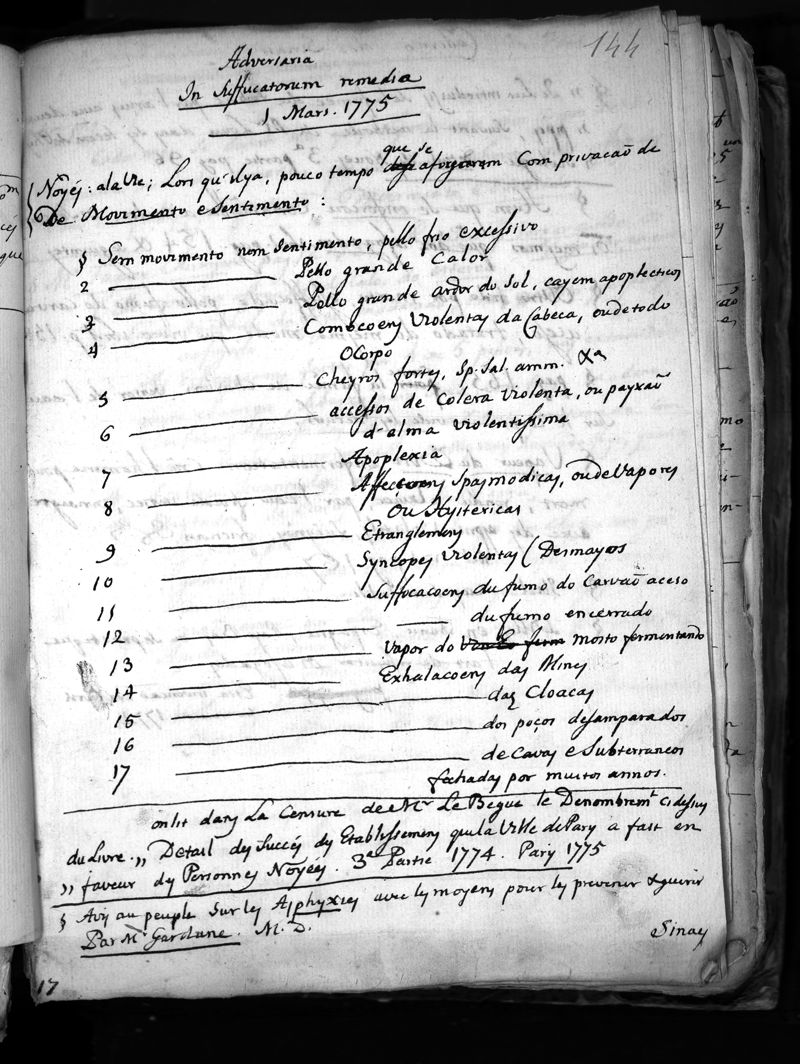 144
Adversaria
In Suffucatorum remedia
1 Mars. 1775
que se
Noÿéz: ala Vie; Lors qu'ilya, pouco tempo aforgarem Com privacaõ de
De Movimento e Sentimento:
§ Sem movimento nem Sentimento, pello frio excessivo
2 ———— Pello grande Calor
3 ———— Pello grande ardor do Sol, cayem apoplecticos
4 ———— Comocoens Violentas da Cabeca, ou de todo
O Corpo
5 ———— Cheyros fortes, Sp. Sal. amm. &a
6 ———— accessos de Colera Violenta, ou payxaõ
d'alma violentissima
7 ———— Apoplexia
8 ———— Affecçoens Spasmodicas, ou de Vapores
Ou Hystericas
9 ———— Etranglemens
10 ———— Syncopes Violentas (Desmayos
11 ———— Suffocacoens du fumo do Carvaõ aceso
12 ———— —— du fumo encerrado
13 ———— Vapor do mosto fermentando
14 ———— Exhalacoens das Mines
15 ———— das Cloacas
16 ———— dos poços desamparados
17 ———— de Cavas e Subterraneos
fechadas por muitos annos.
on lit dans La Censure de Mr Le Begue le Denombremt. ci dessus
du Livre. „ Detail des Succés des Etablissemens que la Ville de Paris a fait en
„ faveur des Personnes Noÿées. 3e Partie 1774. Paris 1775
§ Avis au peuple Sur les Asphyxies avec les moyens pour les prevenir & guerir
Par Mr. Gardane. M. D.
Sinays
17